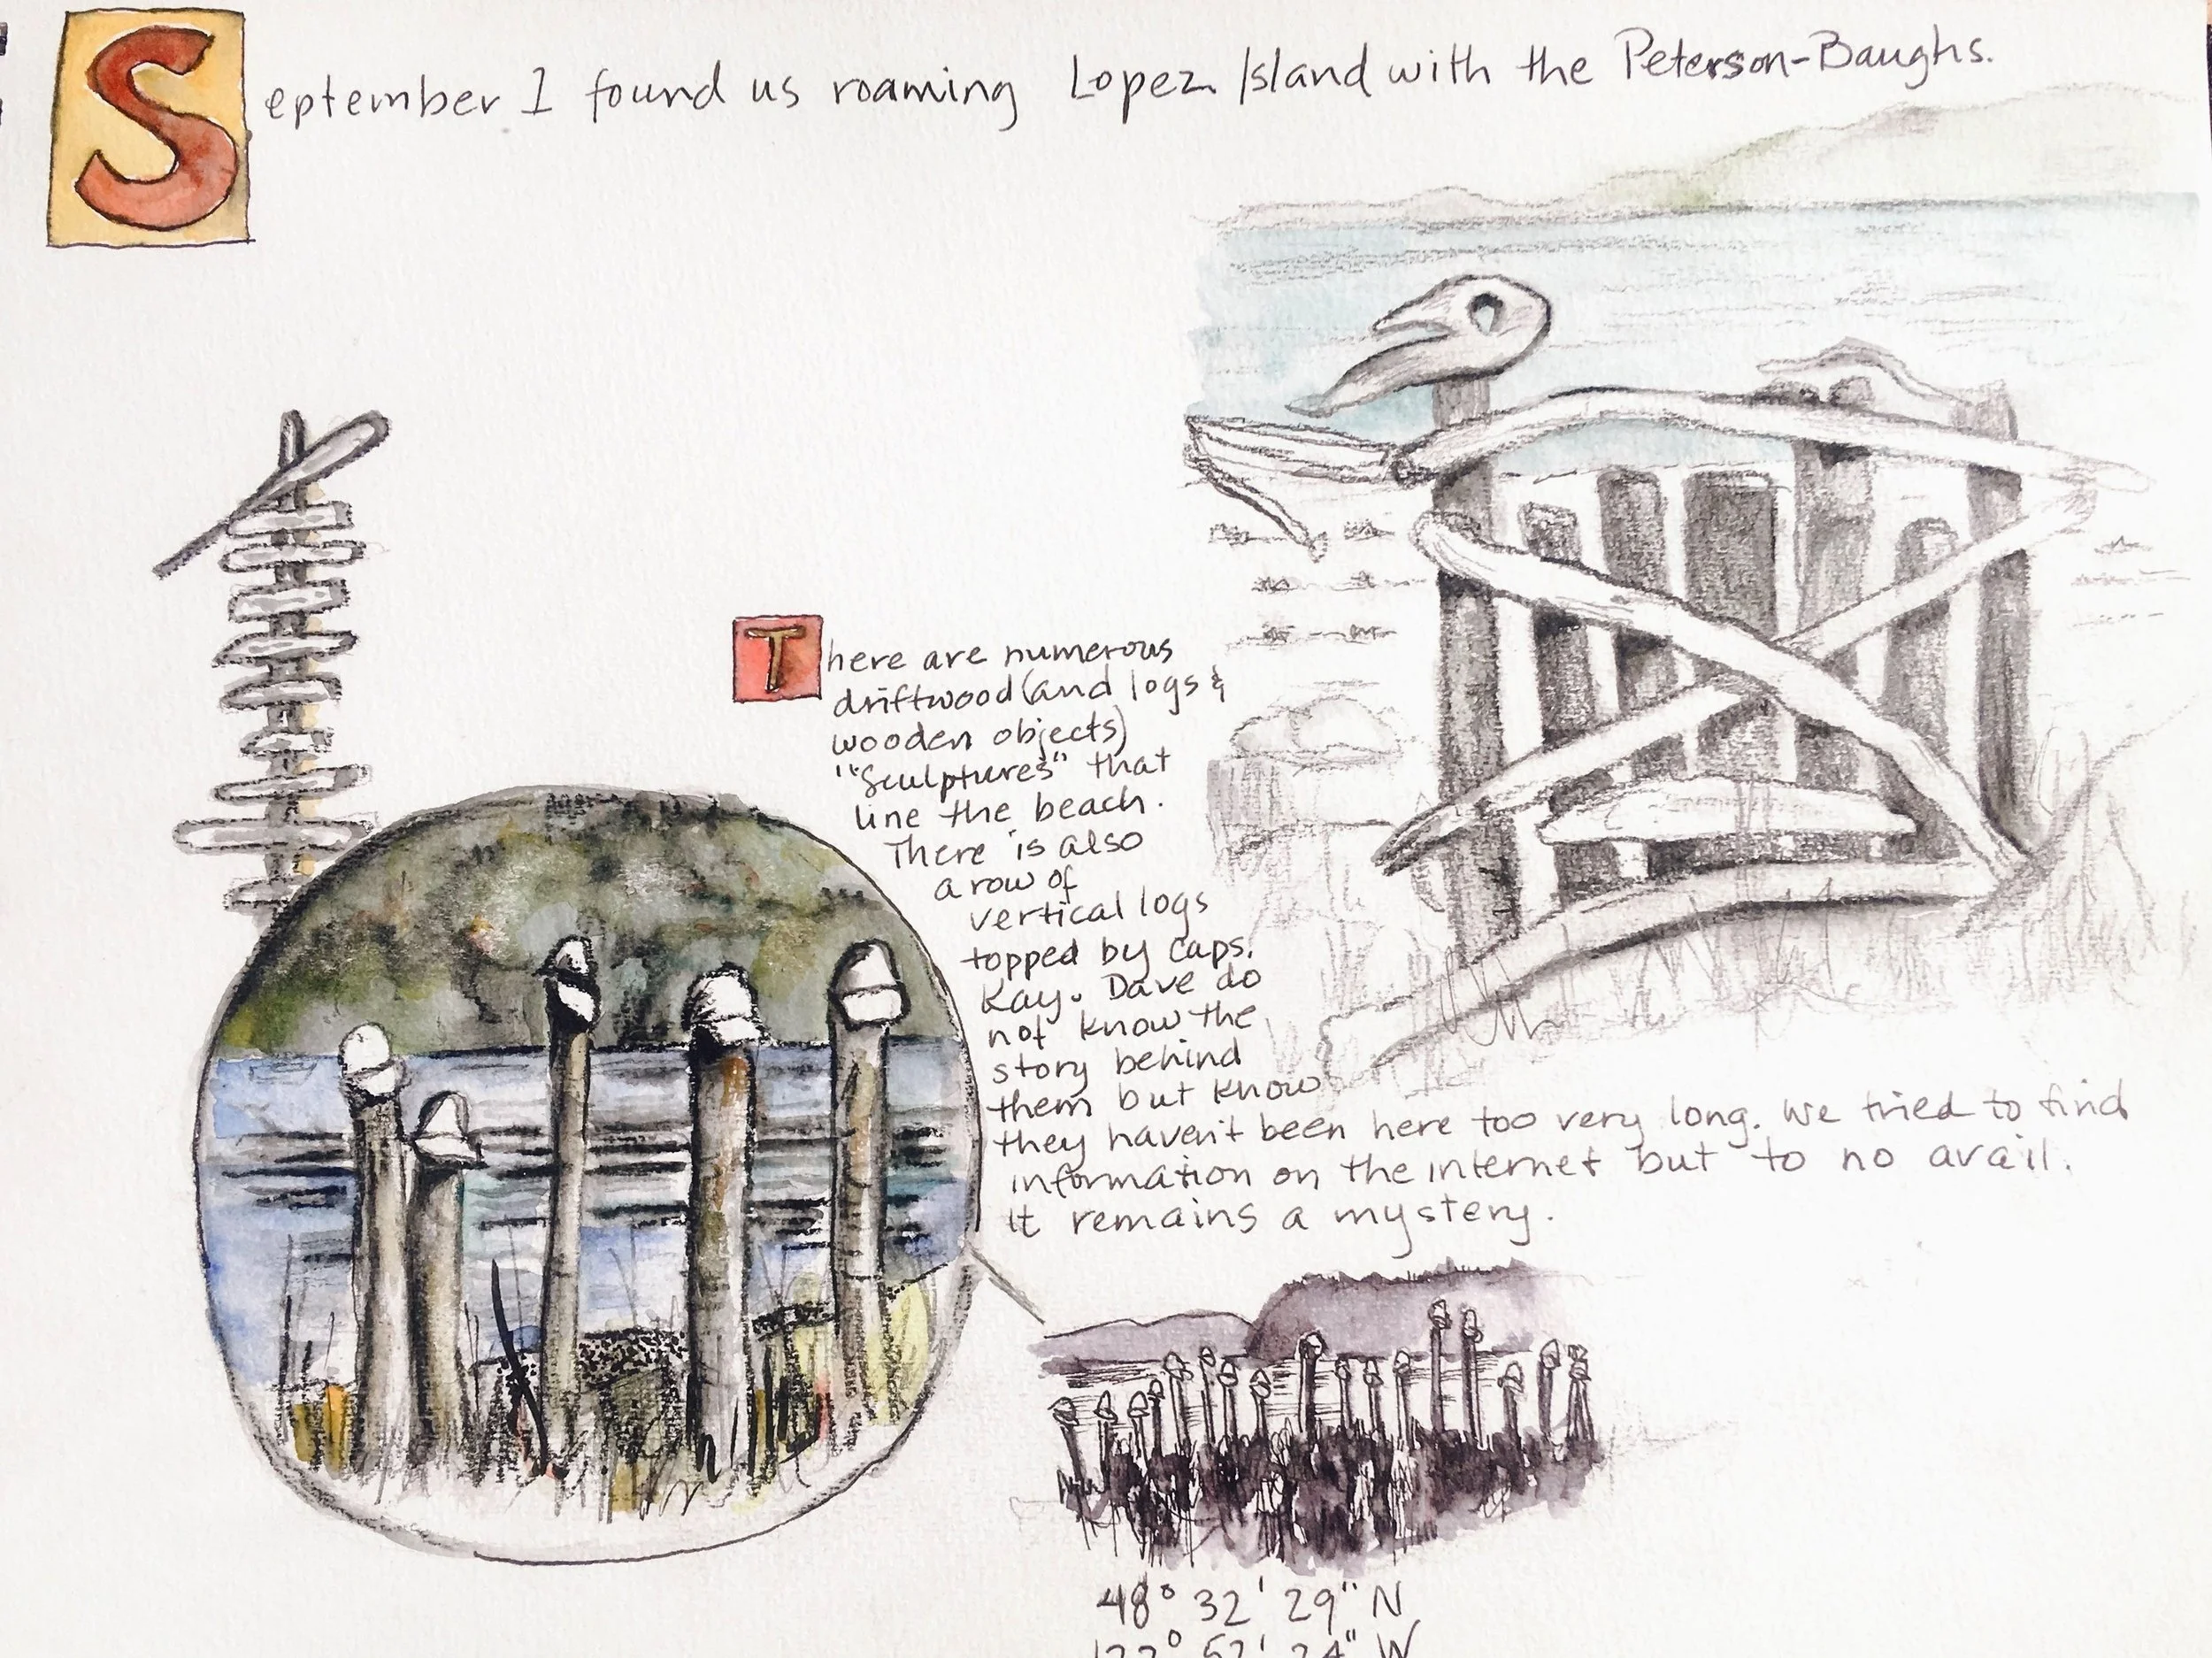 September 1 found us roaming Lopez Island with the Peterson-Baughs.
There are numerous
driftwood (and logs &
wooden objects)
"Sculptures" that
line the beach.
There is also
a row of
vertical logs
topped by caps.
Kay. Dave do
not know the
story behind
them but know
they haven't been here too very long. We tried to find
information on the internet but to no avail.
It remains a mystery.
48° 32' 29" N
24" W